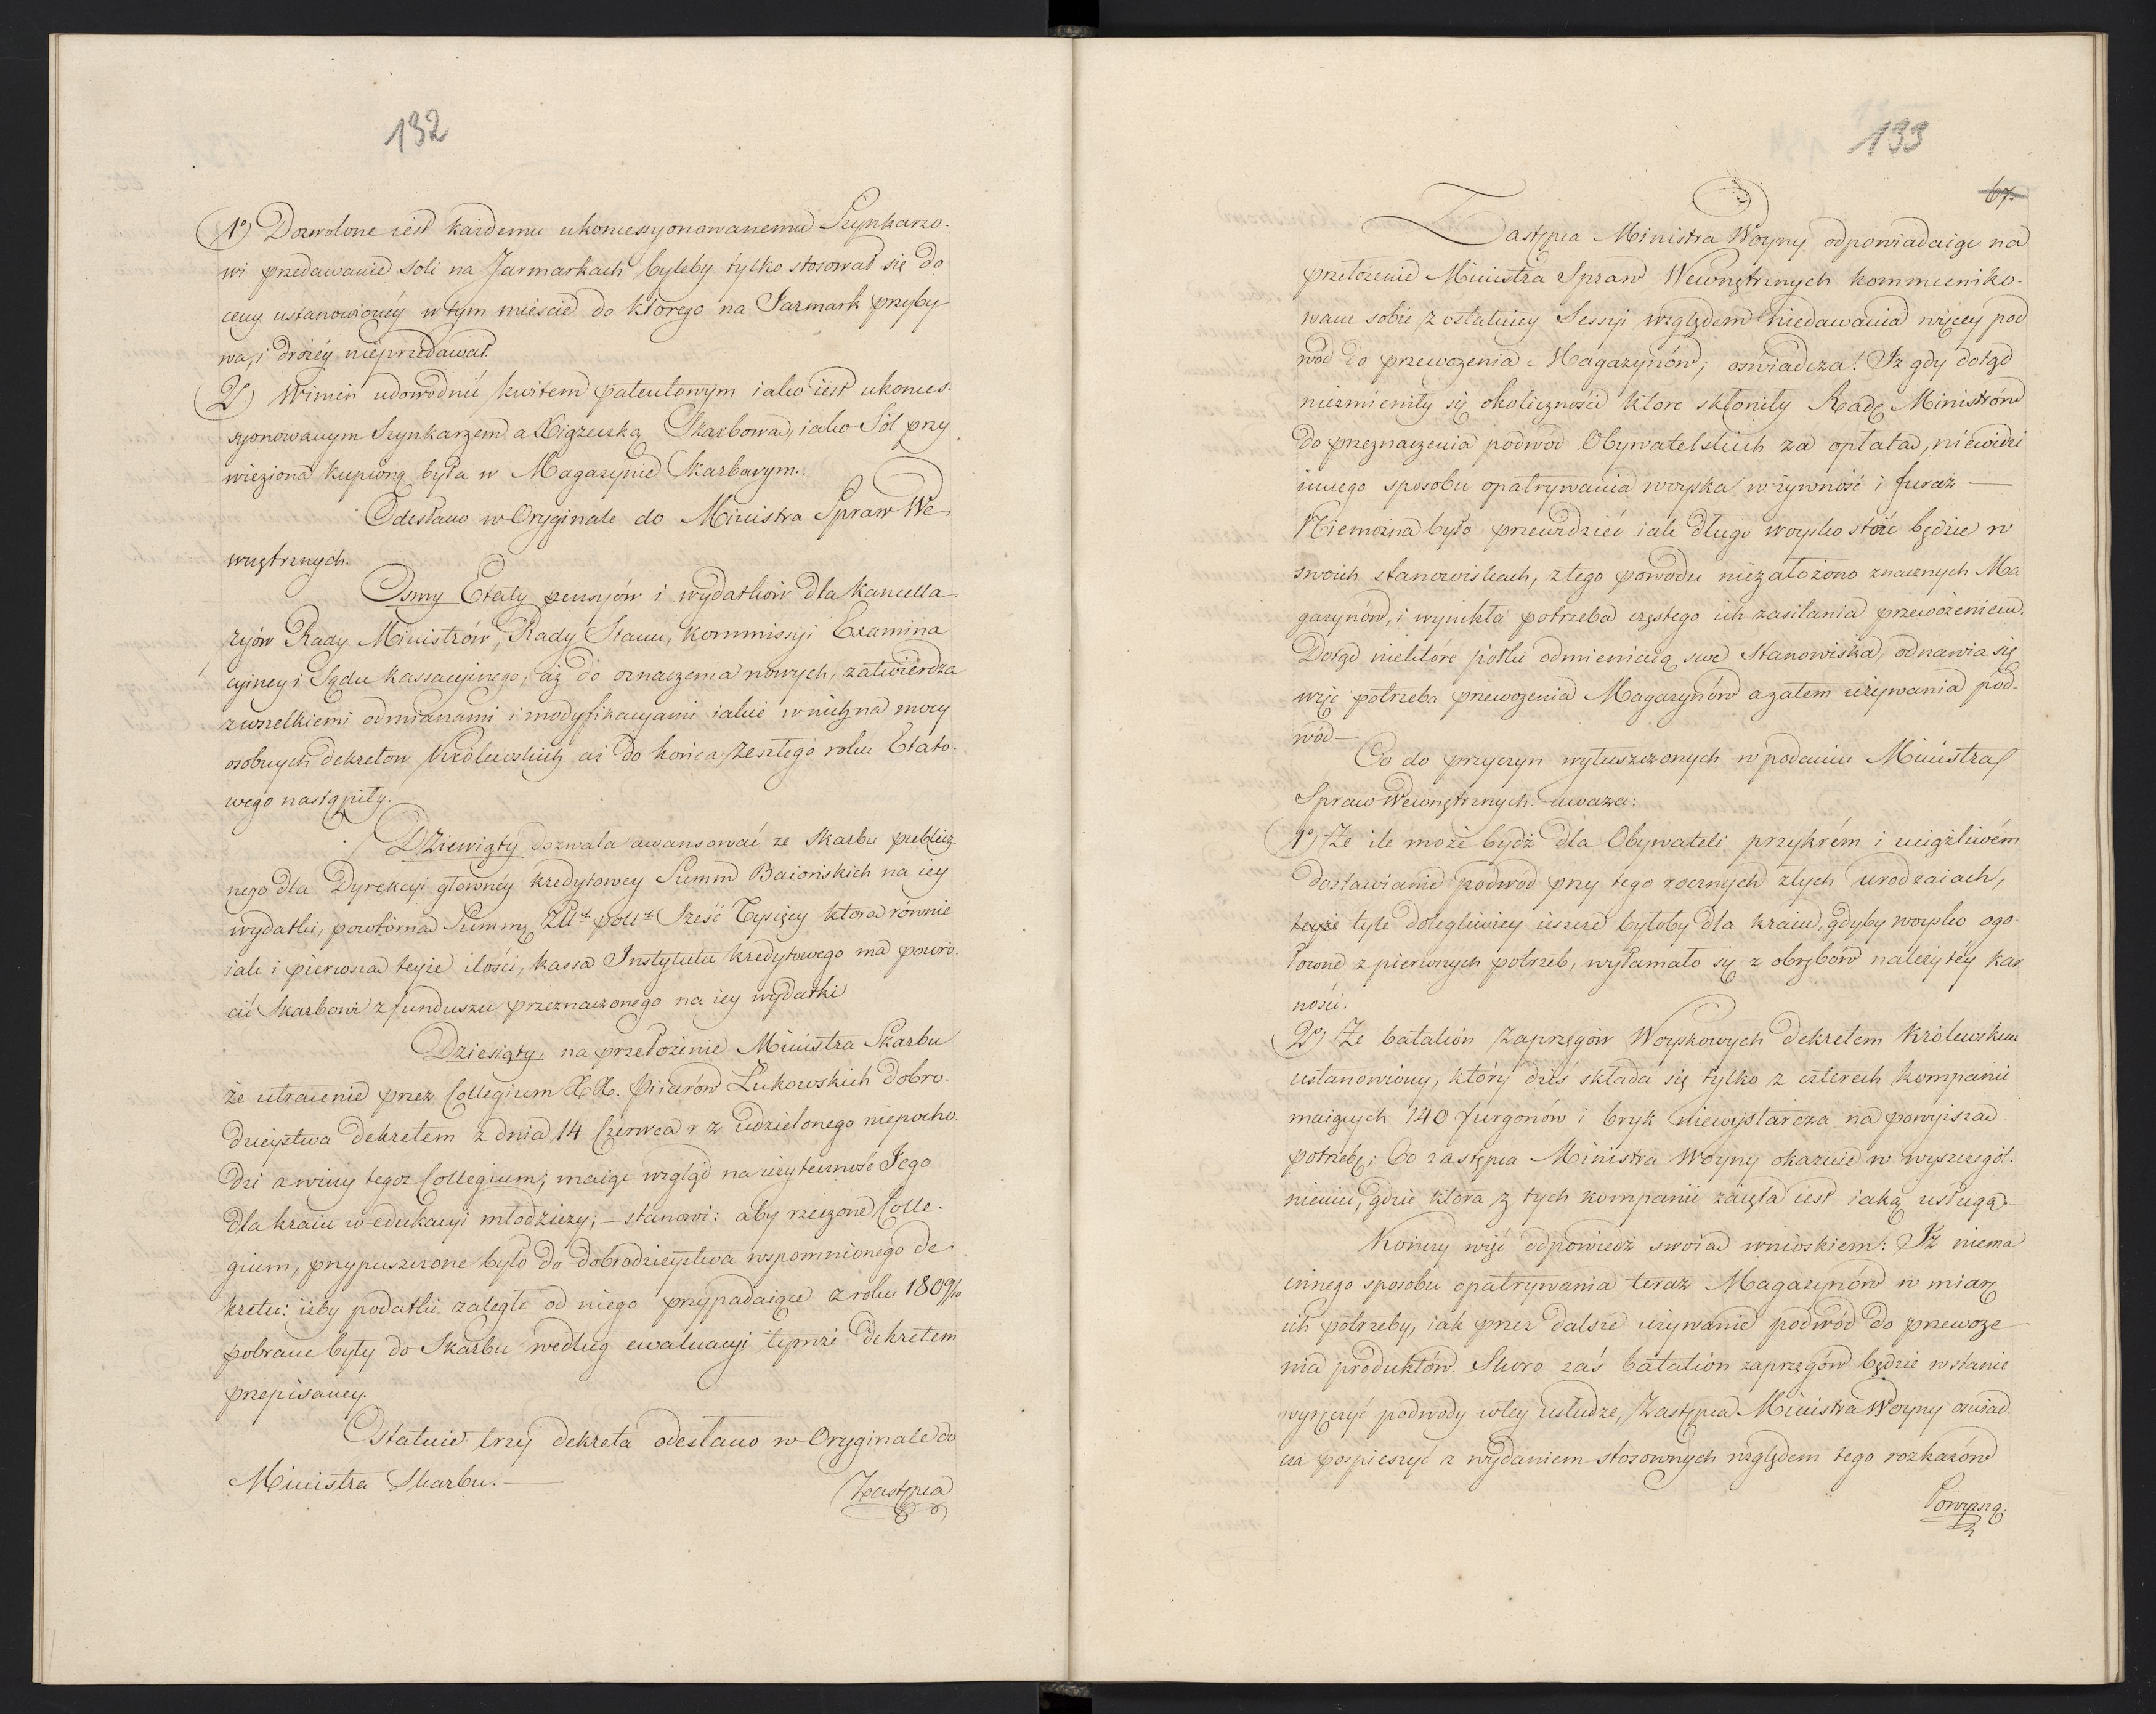 132
1º) Dozwolone iest każdemu ukoncessyonowanemu Szynkarzo-
wi przedawanie soli na Jarmarkach byleby tylko stosował się do
ceny ustanowionéy w tym mieście do którego na Jarmark przyby
wa, i drożéy nieprzedawał.
2º) Winien udowodnić kwitem patentowym iako iest ukonces-
syonowanym Szynkarzem, a Xiążeczką Skarbową, iako Sól przy
wieziona kupioną była w Magazynie Skarbowym.
Odesłano w Oryginale do Ministra Spraw We
wnętrznych.
Osmy Etaty pensyów i wydatków dla Kancella
ryów Rady Ministrów, Rady Stanu, Kommissyi Examina
cyiney i Sądu Kassacyinego, aż do oznaczenia nowych, zatwierdza
z wszelkiemi odmianami i modyfikacyami iakie w nich na mocy
osobnych dekretow Królewskich aż do końca zeszłego roku Etato-
wego nastąpiły.
Dziewiąty dozwala awansować ze Skarbu publicz-
nego dla Dyrekcyi głownéy kredytowey Summ Baiońskich na iey
wydatki, powtórną Summę Złt pols Sześć Tysięcy która równie
iak i pierwsza teyże ilości, kassa Instytutu kredytowego ma powró-
cić Skarbowi z funduszu przeznaczonego na iey wydatki
Dziesiąty na przełożenie Ministra Skarbu
że utracenie przez Collegium XX. Piiarów Łukowskich dobro-
dzieystwa dekretem z dnia 14 Czerwca r. z. udzielonego niepocho-
dzi z winy tegoż Collegium; maiąc wzgląd na użyteczność Jego
dla kraiu w edukacyi młodzieży; – stanowi: aby rzeczone Colle-
gium, przypuszczone było do dobrodzieystwa wspomnionego de
kretu: iżby podatki zaległe od niego przypadaiące z roku 1809/10
pobrane były do Skarbu według ewaluacyi tymże dekretem
przepisaney.
Ostatnie trzy dekreta odesłano w Oryginale do
Ministra Skarbu. —
Zastępca
133
67.
Zastępca Ministra Woyny, odpowiadaiąc na
przełożenie Ministra Spraw Wewnętrznych kommuniko-
wane sobie z ostatniey Sessyi względem niedawania więcey pod
wod do przewożenia Magazynów; oświadcza! Iż gdy dotąd
niezmieniły się okoliczności które skłoniły Radę Ministrów
do przeznaczenia podwod Obywatelskich za opłatą, niewidzi
innego sposobu opatrywania woyska w żywność i furaż —
Niemożna było przewidzieć iak długo woysko stać będzie w
swoich stanowiskach, z tego powodu niezałożono znacznych Ma
gazynów, i wynikła potrzeba częstego ich zasilania przewożeniem.
Dotąd niektóre pułki odmieniaią swe Stanowiska, odnawia się
więc potrzeba przewożenia Magazynów a zatem używania pod-
wód —
Co do przyczyn wyłuszczonych w podaniu Ministra
Spraw Wewnętrznych uważa:
1º) Że ile może bydź dla Obywateli przykrém i uciążliwém
dostawianie podwod przy tego rocznych złych urodzaiach,
tyle dolegliwiey ieszcze byłoby dla kraiu, gdyby woysko ogo-
łocone z pierwszych potrzeb, wyłamało się z obrębów należytéy kar
ności.
2º) Że batalion Zaprzęgów Woyskowych dekretem Królewskim
ustanowiony, który dziś składa się tylko z czterech kompanii
maiących 140 furgonów i bryk niewystarcza na powyższą
potrzebę; Co zastępca Ministra Woyny okazuie w wyszczegól-
nieniu, gdzie która z tych kompanii zaięta iest iaką usługą.
Kończy więc odpowiedź swoią wnioskiem: Iż niema
innego sposobu opatrywania teraz Magazynów w miarę
ich potrzeby, iak przez dalsze używanie podwód do przewoże
nia produktów. Skoro zaś batalion zaprzęgów będzie w stanie
wyręczyć podwody w tey usłudze, Zastępca Ministra Woyny oświad-
cza pospieszyć z wydaniem stosownych względem tego rozkazów
Powyższą